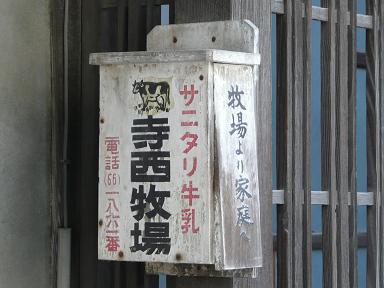 サニタリ牛乳
寺西牧場
電話(66)一八六一番
牧場より家庭へ